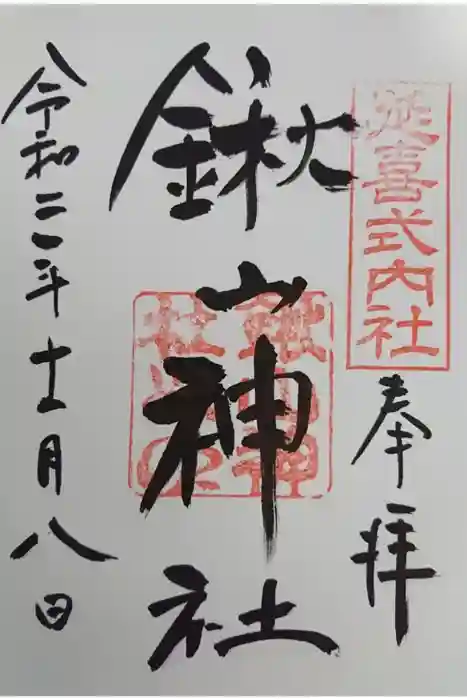 延喜式内社
奉拝
鍬山神社
鍬山神
社之印
令和二年十一月八日